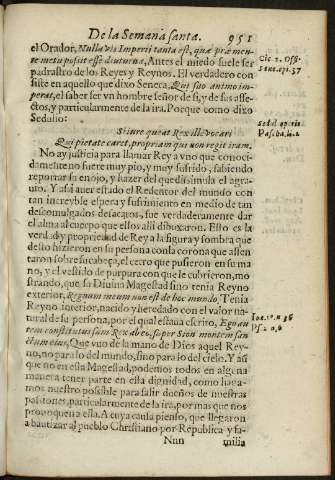 De la Semana santa. 951
el Orador, Nulla vis Imperii tanta est, quæ præmen-
te metu possit esse diuturna, Antes el miedo suele ser
padrastro de los Reyes y Reynos. El verdadero con
siste en aquello que dixo Seneca, Qui suo animo im-
perat, el saber ser vn hombre señor de si, y de sus afe-
ctos, y particularmente de la ira. Porque como dixo
Sedulio:
Si iure queat Rex ille vocari
Qui pietate caret, propriam qui non regit iram.
No ay justicia para llamar Rey a vno que conoci-
damente no fuere muy pio, y muy sufrido, sabiendo
reportar su enojo, y hazer del que dissimula el agra-
uio. Y assi auer estado el Redentor del mundo con
tan increyble espera y sufrimiento en medio de tan
descomulgados desacatos, fue verdaderamente dar
el alma al cuerpo que ellos alli dibuxaron. Ello es la
verdad y propriedad de Rey a la figura y sombra que
desto hizieron en su persona con la corona que assen
taron sobre su cabeça, el cetro que pusieron en su ma
no, y el vestido de purpura con que le cubrieron, mo
strando, que su Diuina Magestad sino tenia Reyno
exterior, Regnum meum non est de hoc mundo, Tenia
Reyno interior, nacido y heredado con el valor na-
tural de su persona, por el qual estaua escrito, Ego au
tem constitutus sum Rex ab eo, super Sion montem san
ctum eius, Que vuo de la mano de Dios aquel Rey-
no, no para lo del mundo, sino para lo del cielo. Y assi
que no en esta Magestad, podemos todos en alguna
manera tener parte en esta dignidad, como haga-
mos nuestro possible para salir dueños de nuestras
passiones, particularmente de la ira, por mas que nos
prouoquen a ella. A cuya causa pienso, que llegaron
a bautizar al pueblo Christiano por Republica y fa-
Nnn milia
Cic. 2. Offi-
Sene. epi. 37
Sedul.
Ioc. 18. n. 36
Ps. 2. n. 6